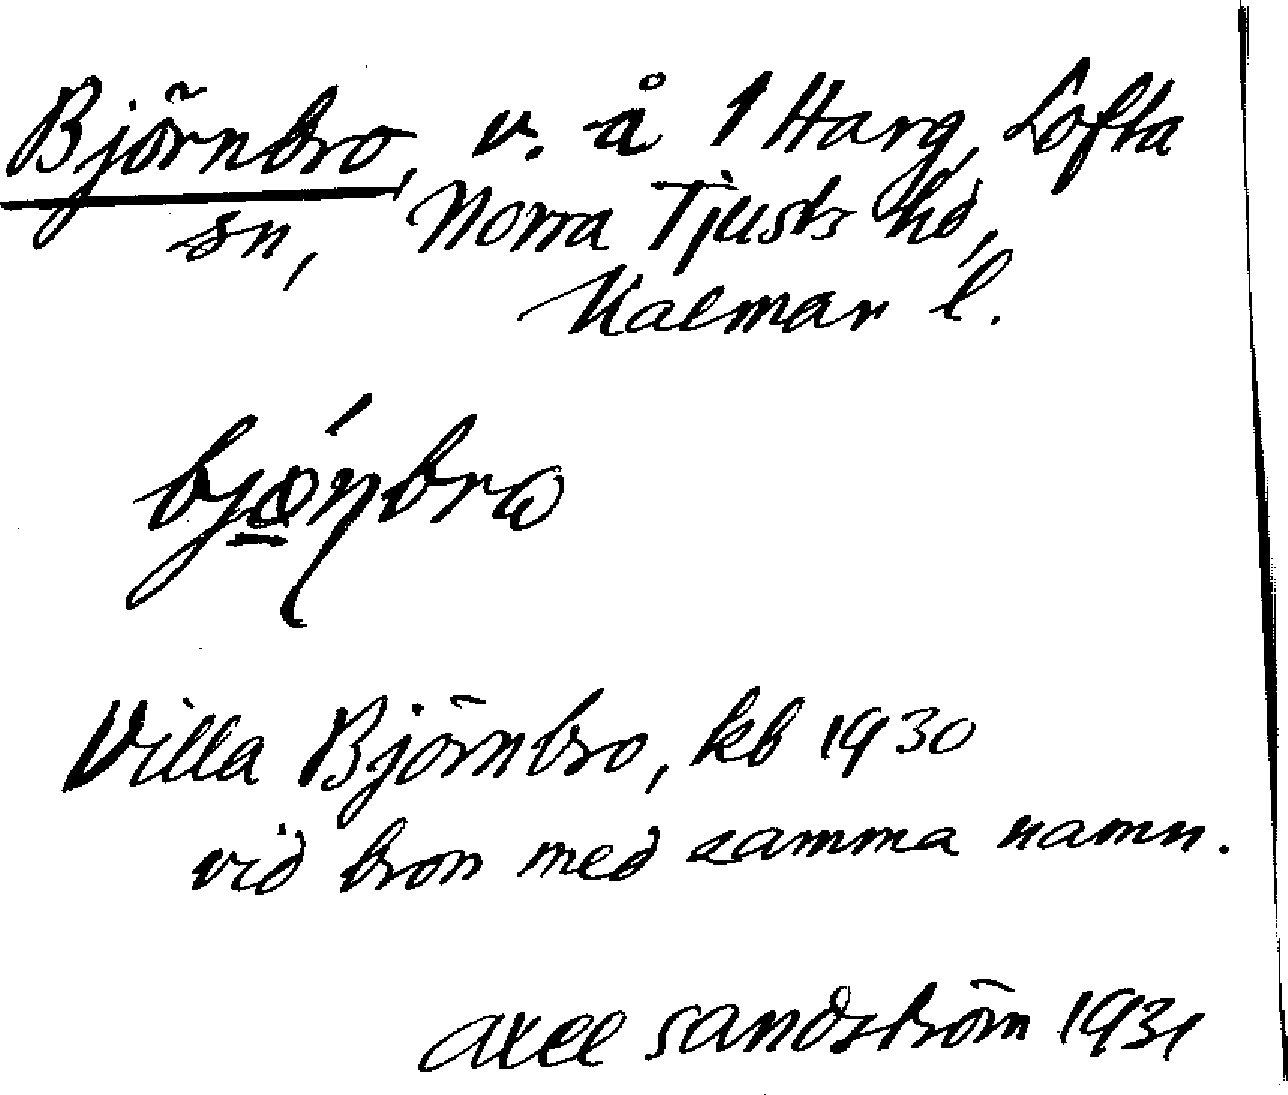 Björnbro, v. å 1 Harg, Lofta
sn, Norra Tjusts hd,
Kalmar l.
Villa Björnbro, kb 1930
vid bron med samma namn.
Axel Sandström 1931